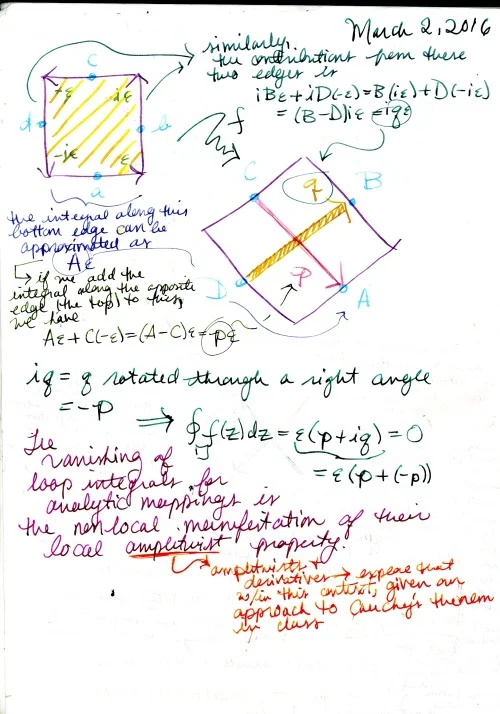 March 2, 2016
similarly,
the contributions from these
two edges is
iBε + iD(-ε) = B(iε) + D(-iε)
= (B-D)iε = iqε
C
+ε
iε
d
b
-iε
ε
a
f
C
q
B
D
p
A
the integral along this
bottom edge can be
approximated as
Aε
↳ if we add the
integral along the opposite
edge (the top) to this,
we have
Aε + C(-ε) = (A-C)ε = pε
iq = q rotated through a right angle
= -p ⟹ ∮ f(z)dz = ε(p+iq) = 0
= ε(p+(-p))
The
vanishing of
loop integrals for
analytic mappings is
the nonlocal manifestation of their
local amplitwist property.
amplitwists +
derivatives → expose that
w/in this context, given an
approach to Cauchy's theorem
in class